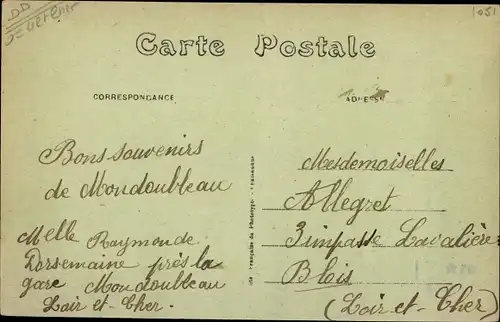 1051
Carte Postale
CORRESPONDANCE
ADRESSE
Bons souvenirs
de Moudoubleau
Melle Raymonde
Dorsemaine près la
gare Moudoubleau
Loir et-Cher.
Mesdemoiselles
Allegret
3 impasse Lavalière
Blois
(Loir-et-Cher)